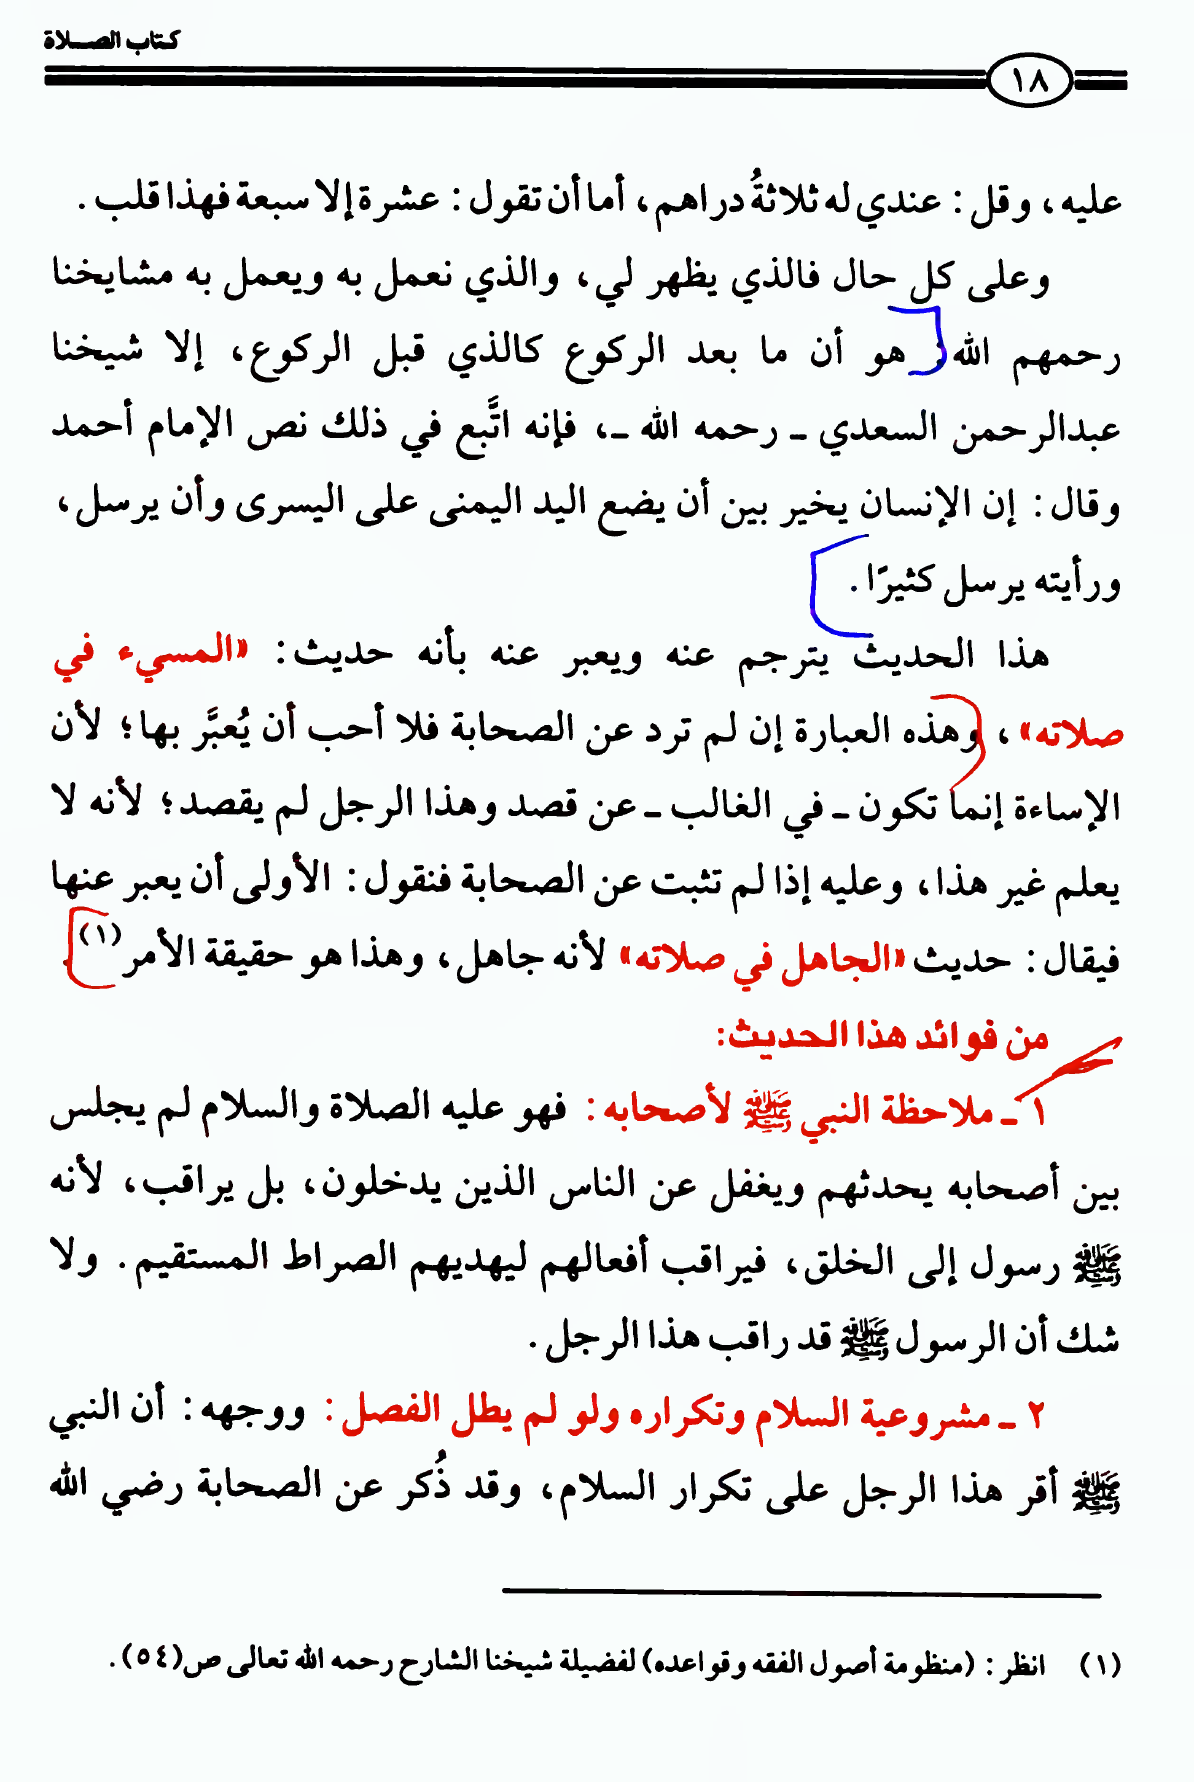 كتاب الصلاة
١٨
عليه، وقل: عندي له ثلاثةُ دراهم، أما أن تقول: عشرة إلا سبعة فهذا قلب.
وعلى كل حال فالذي يظهر لي، والذي نعمل به ويعمل به مشايخنا
رحمهم الله: هو أن ما بعد الركوع كالذي قبل الركوع، إلا شيخنا
عبدالرحمن السعدي ـ رحمه الله ـ، فإنه اتَّبع في ذلك نص الإمام أحمد
وقال: إن الإنسان يخير بين أن يضع اليد اليمنى على اليسرى وأن يرسل،
ورأيته يرسل كثيرًا.
هذا الحديث يترجم عنه ويعبر عنه بأنه حديث: «المسيء في
صلاته»، وهذه العبارة إن لم ترد عن الصحابة فلا أحب أن يُعبَّر بها؛ لأن
الإساءة إنما تكون ـ في الغالب ـ عن قصد وهذا الرجل لم يقصد؛ لأنه لا
يعلم غير هذا، وعليه إذا لم تثبت عن الصحابة فنقول: الأولى أن يعبر عنها
فيقال: حديث «الجاهل في صلاته» لأنه جاهل، وهذا هو حقيقة الأمر(١).
من فوائد هذا الحديث:
١ ـ ملاحظة النبي ﷺ لأصحابه: فهو عليه الصلاة والسلام لم يجلس
بين أصحابه يحدثهم ويغفل عن الناس الذين يدخلون، بل يراقب، لأنه
ﷺ رسول إلى الخلق، فيراقب أفعالهم ليهديهم الصراط المستقيم. ولا
شك أن الرسول ﷺ قد راقب هذا الرجل.
٢ ـ مشروعية السلام وتكراره ولو لم يطل الفصل: ووجهه: أن النبي
ﷺ أقر هذا الرجل على تكرار السلام، وقد ذُكر عن الصحابة رضي الله
(١) انظر: (منظومة أصول الفقه وقواعده) لفضيلة شيخنا الشارح رحمه الله تعالى ص(٥٤).